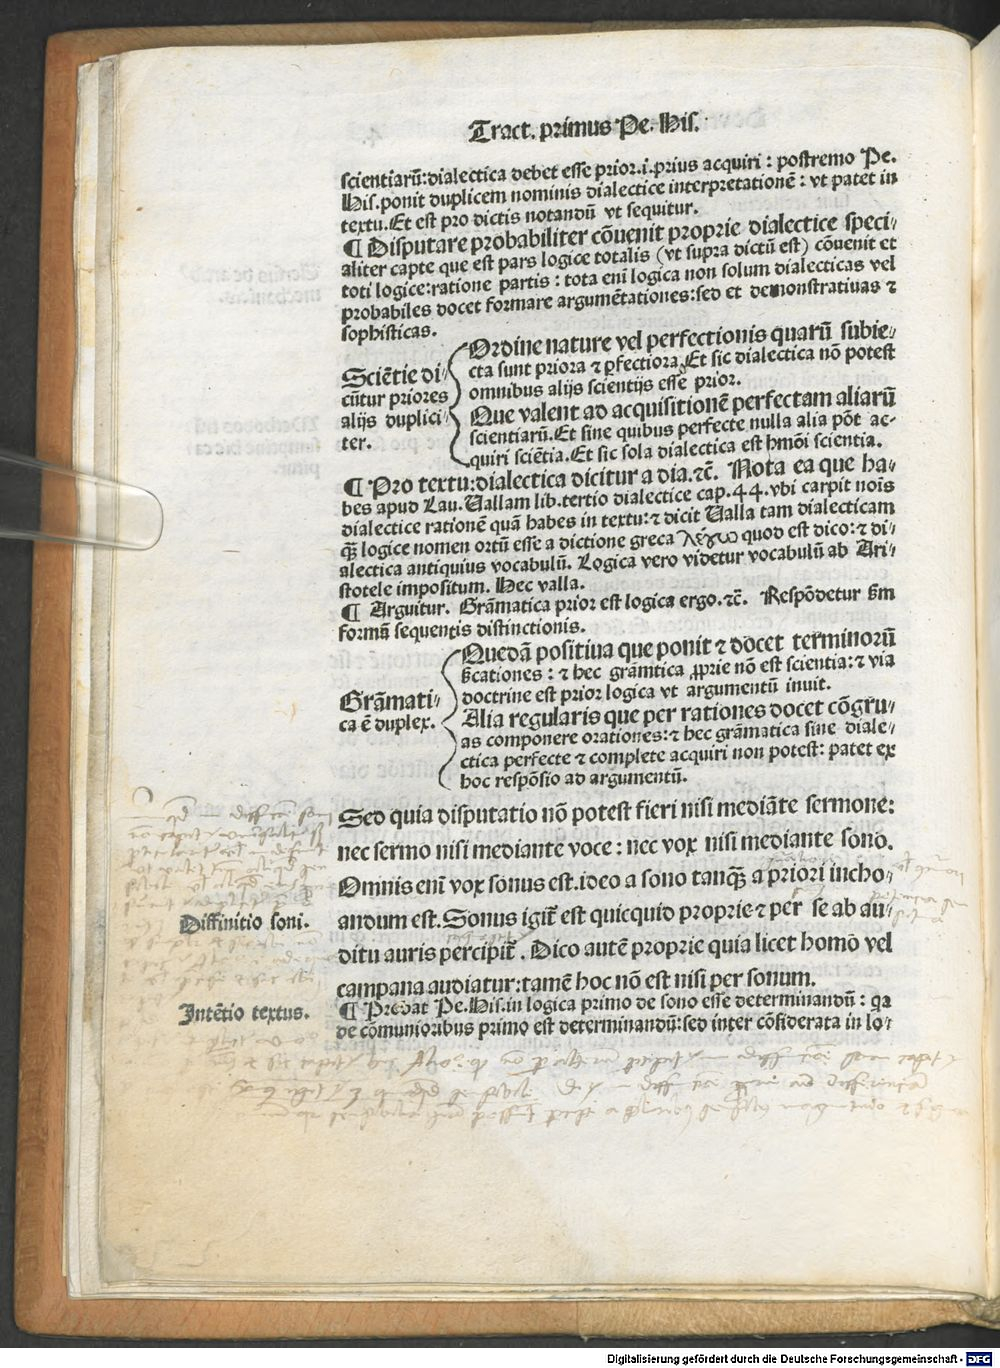 Tract. primus Pe. His.
scientiarū: dialectica debet esse prior .i. prius acquiri: postremo Pe.
His. ponit duplicem nominis dialectice interpretationē: vt patet in
textu. Et est pro dictis notandū vt sequitur.
¶ Disputare probabiliter cōuenit proprie dialectice speci⸗
aliter capte que est pars logice totalis (vt supra dictū est) cōuenit et
toti logice: ratione partis: tota eni logica non solum dialecticas vel
probabiles docet formare argumētationes: sed et demonstratiuas ⁊
sophisticas.
Sciētie di⸗
cūtur priores
alijs duplici⸗
ter.
Ordine nature vel perfectionis quarū subie⸗
cta sunt priora ⁊ ꝑfectiora. Et sic dialectica nō potest
omnibus alijs scientijs esse prior.
Que valent ad acquisitionē perfectam aliarū
scientiarū. Et sine quibus perfecte nulla alia pōt ac⸗
quiri sciētia. Et sic sola dialectica est hmōi scientia.
¶ Pro textu: dialectica dicitur a dia. ⁊c̄. Nota ea que ha⸗
bes apud Lau. Uallam lib. tertio dialectice cap. 44. vbi carpit nois
dialectice rationē quā habes in textu: ⁊ dicit Ualla tam dialecticam
qȝ logice nomen ortū esse a dictione greca λέγω quod est dico: ⁊ di⸗
alectica antiquius vocabulū. Logica vero videtur vocabulū ab Ari⸗
stotele impositum. Hec valla.
¶ Arguitur. Grāmatica prior est logica ergo. ⁊c̄. Respōdetur s̄m
formā sequentis distinctionis.
Grāmati⸗
ca ē duplex.
Quedā positiua que ponit ⁊ docet terminorū
s̄cationes: ⁊ hec grāmtica ꝓprie nō est scientia: ⁊ via
doctrine est prior logica vt argumentū inuit.
Alia regularis que per rationes docet cōgru⸗
as componere orationes: ⁊ hec grāmatica sine diale⸗
ctica perfecte ⁊ complete acquiri non potest: patet ex
hoc respōsio ad argumentū.
Sed quia disputatio nō potest fieri nisi mediāte sermone:
nec sermo nisi mediante voce: nec vox nisi mediante sono.
Omnis eni vox sonus est. ideo a sono tanqȝ a priori incho⸗
andum est. Sonus igit̄ est quicquid proprie ⁊ per se ab au⸗
Diffinitio soni.
ditu auris percipit̄. Dico autē proprie quia licet homo vel
campana audiatur: tamē hoc nō est nisi per sonum.
Intētio textus.
¶ Probat Pe. His. in logica primo de sono esse determinandū: qa
de cōmunioribus primo est determinandū: sed inter cōsiderata in lo⸗
Digitalisierung gefördert durch die Deutsche Forschungsgemeinschaft - DFG